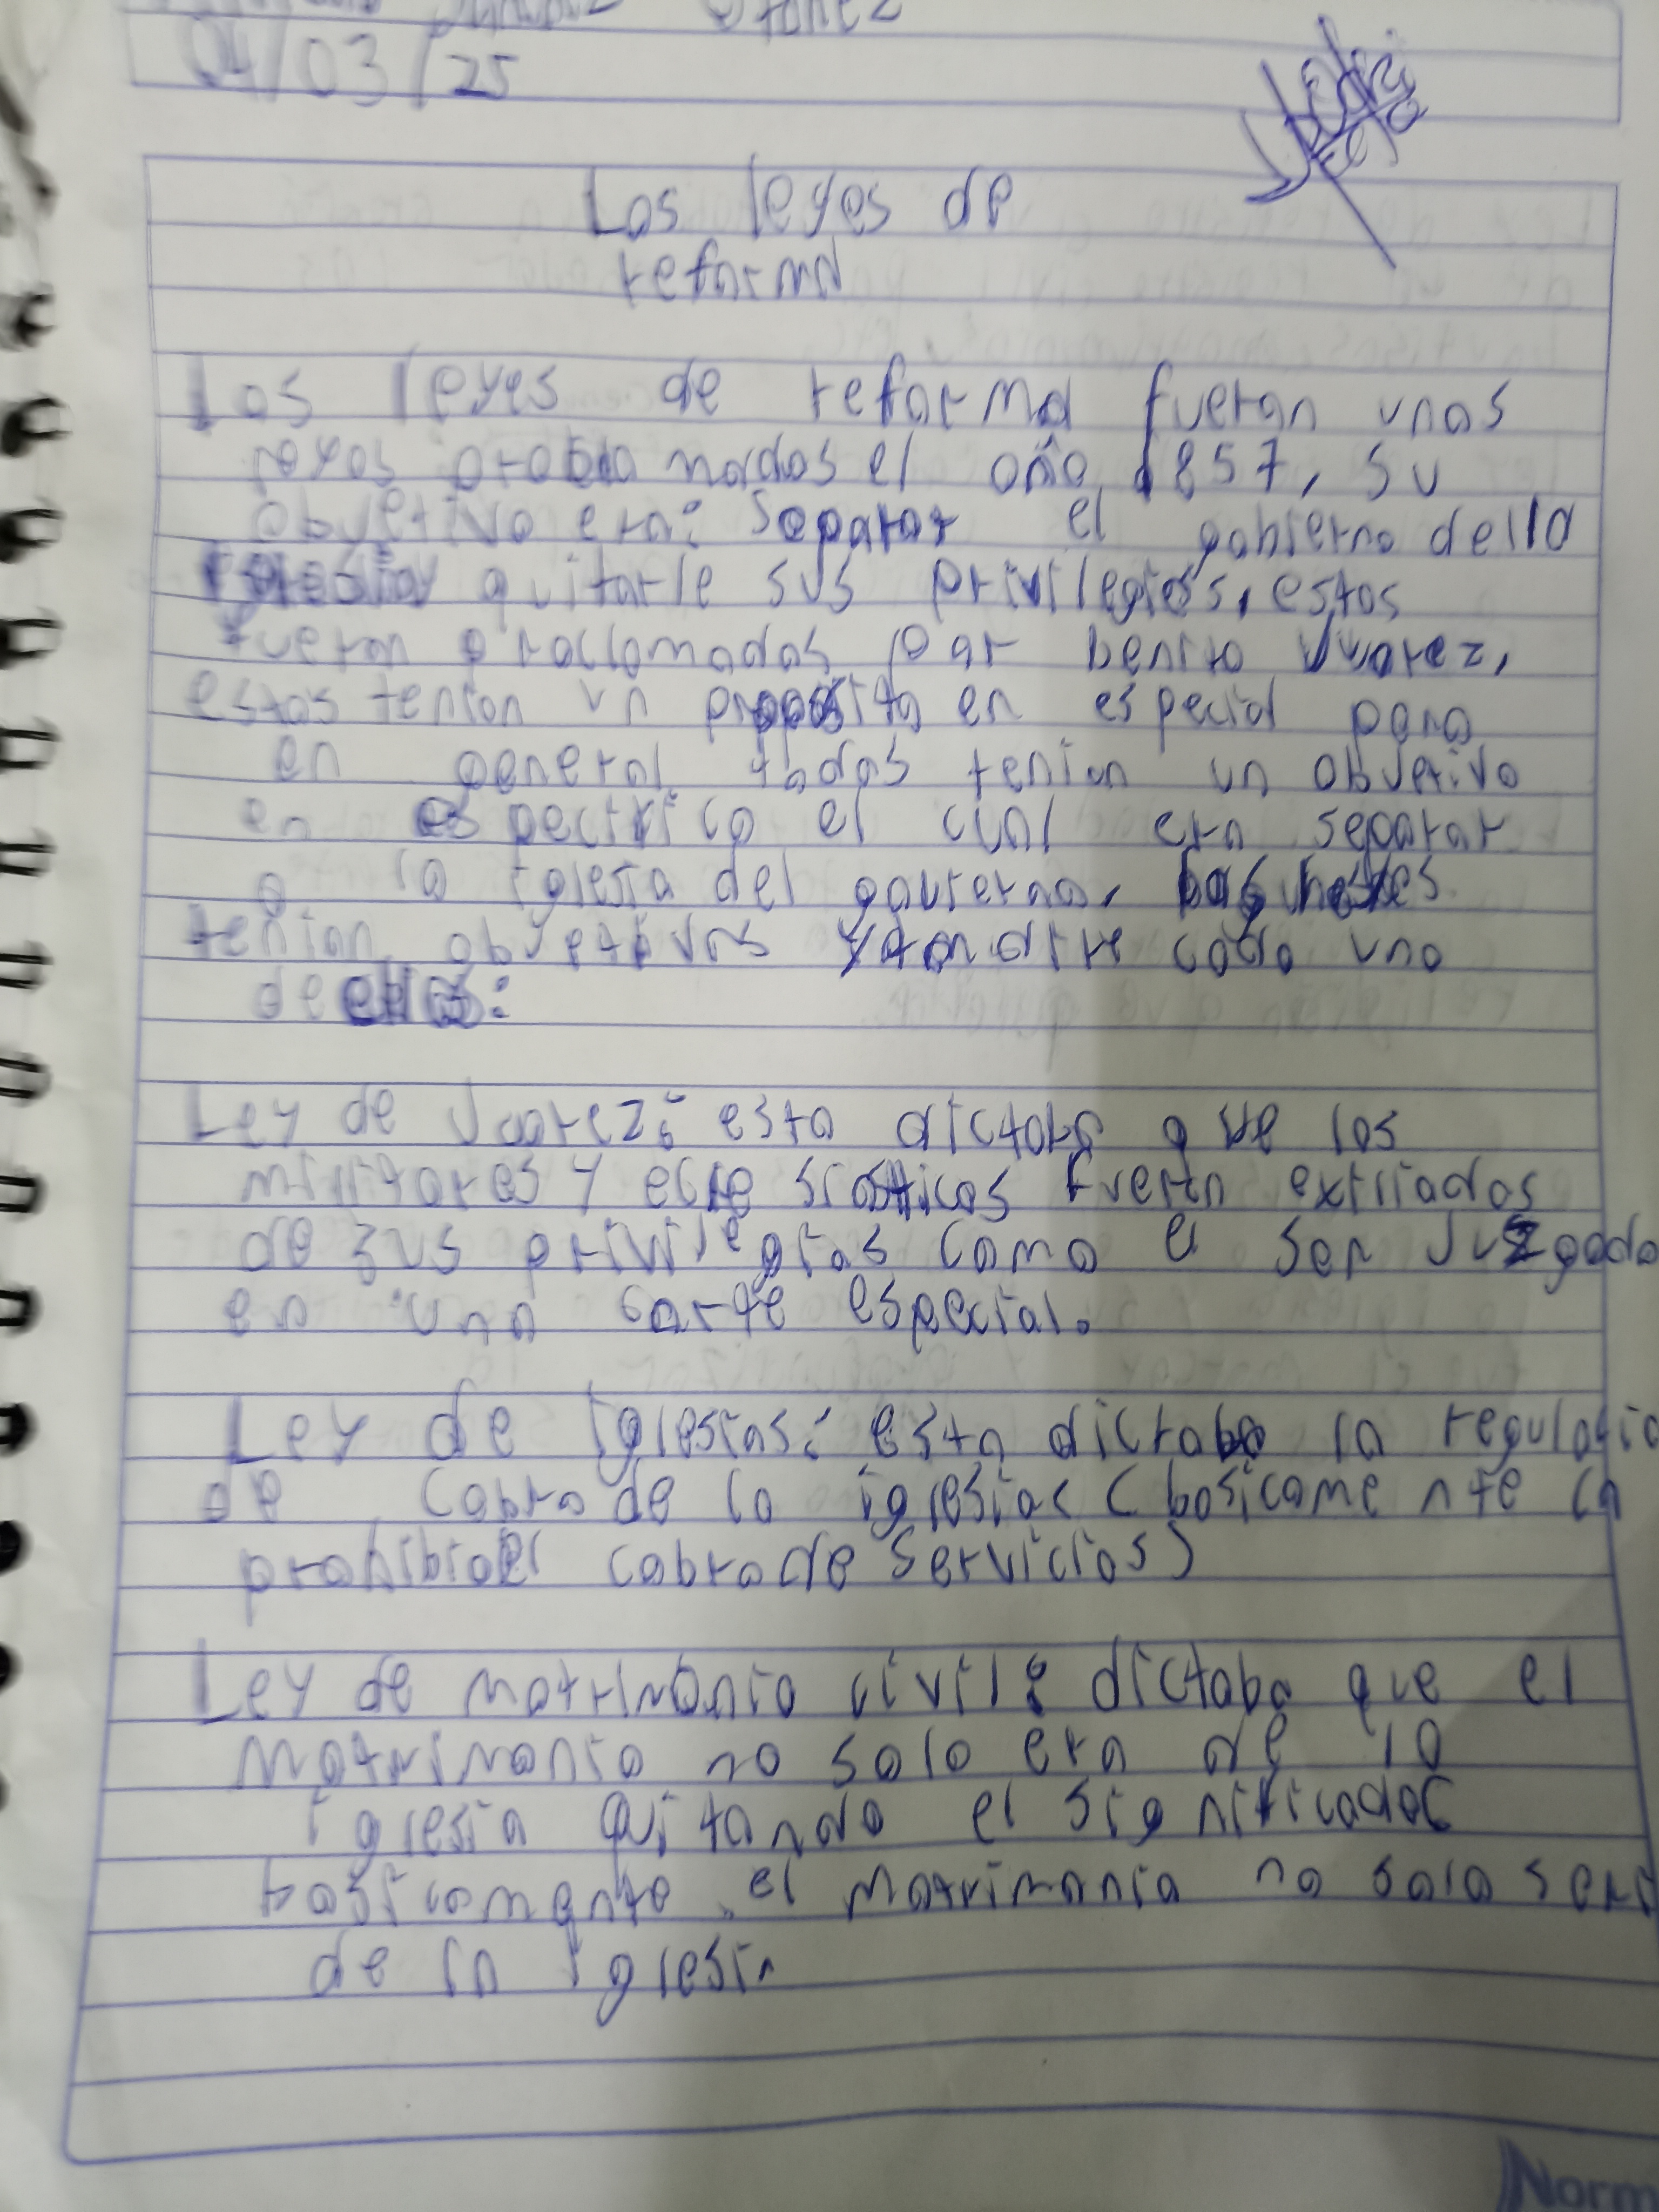 04/03/25
Las leyes de
reforma
Las leyes de reforma fueron unas
leyes proclamadas el año 1857, su
objetivo era: separar el gobierno della
iglesia y quitarle sus privilegios, estas
fueron proclamadas por benito Juarez,
estas tenian un proposito en especial pero
en general todas tenian un objetivo
en especifico el cual era separar
a la iglesia del gobierno, las leyes
tenian objetivos y tondire cada una
de ellas:
Ley de Juarez: esta dictaba que los
militares y eclesiasticos fueran exiliados
de sus privilegios como el ser Juzgado
en una corte especial.
Ley de iglesias: esta dictaba la regulacio
de cobro de la iglesia (basicamente la
prohibio el cobro de servicios)
Ley de matrimonio civil: dictaba que el
matrimonio no solo era de la
iglesia quitando el significado(
basicamente el matrimonio no solo seri
de la iglesia
Norm